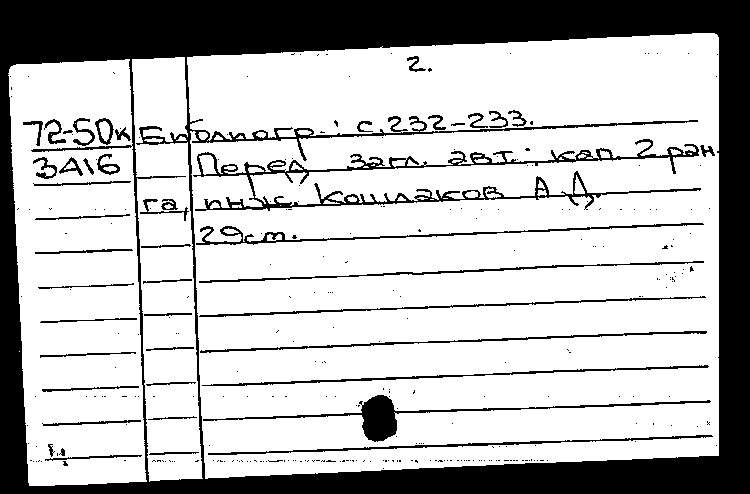 2.
72-50к Библиогр.: с.232-233.
3416 Перед загл. авт.: кап. 2 ран-
га, инж. Кошлаков А.Д.
29см.